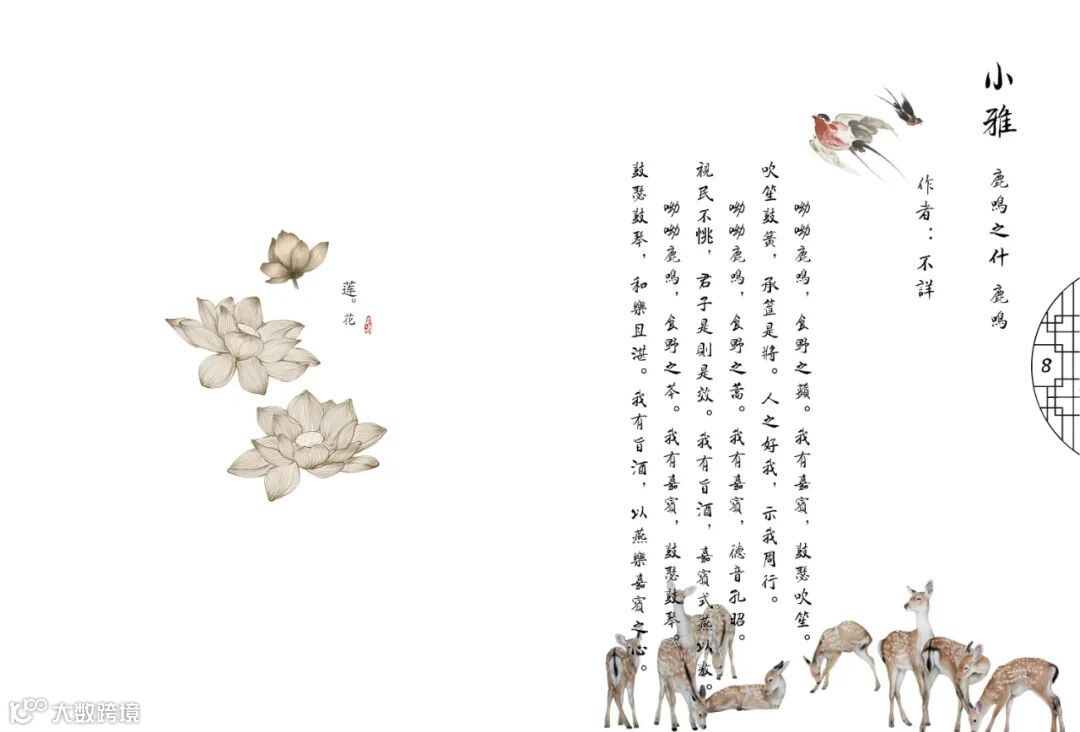 小雅
鹿鳴之什 鹿鳴
作者：不詳
呦呦鹿鳴，食野之蘋。我有嘉賓，鼓瑟吹笙。
吹笙鼓簧，承筐是將。人之好我，示我周行。
呦呦鹿鳴，食野之蒿。我有嘉賓，德音孔昭。
視民不恌，君子是則是效。我有旨酒，嘉賓式燕以敖。
呦呦鹿鳴，食野之芩。我有嘉賓，鼓瑟鼓琴。
鼓瑟鼓琴，和樂且湛。我有旨酒，以燕樂嘉賓之心。
8
莲。花
大数跨境